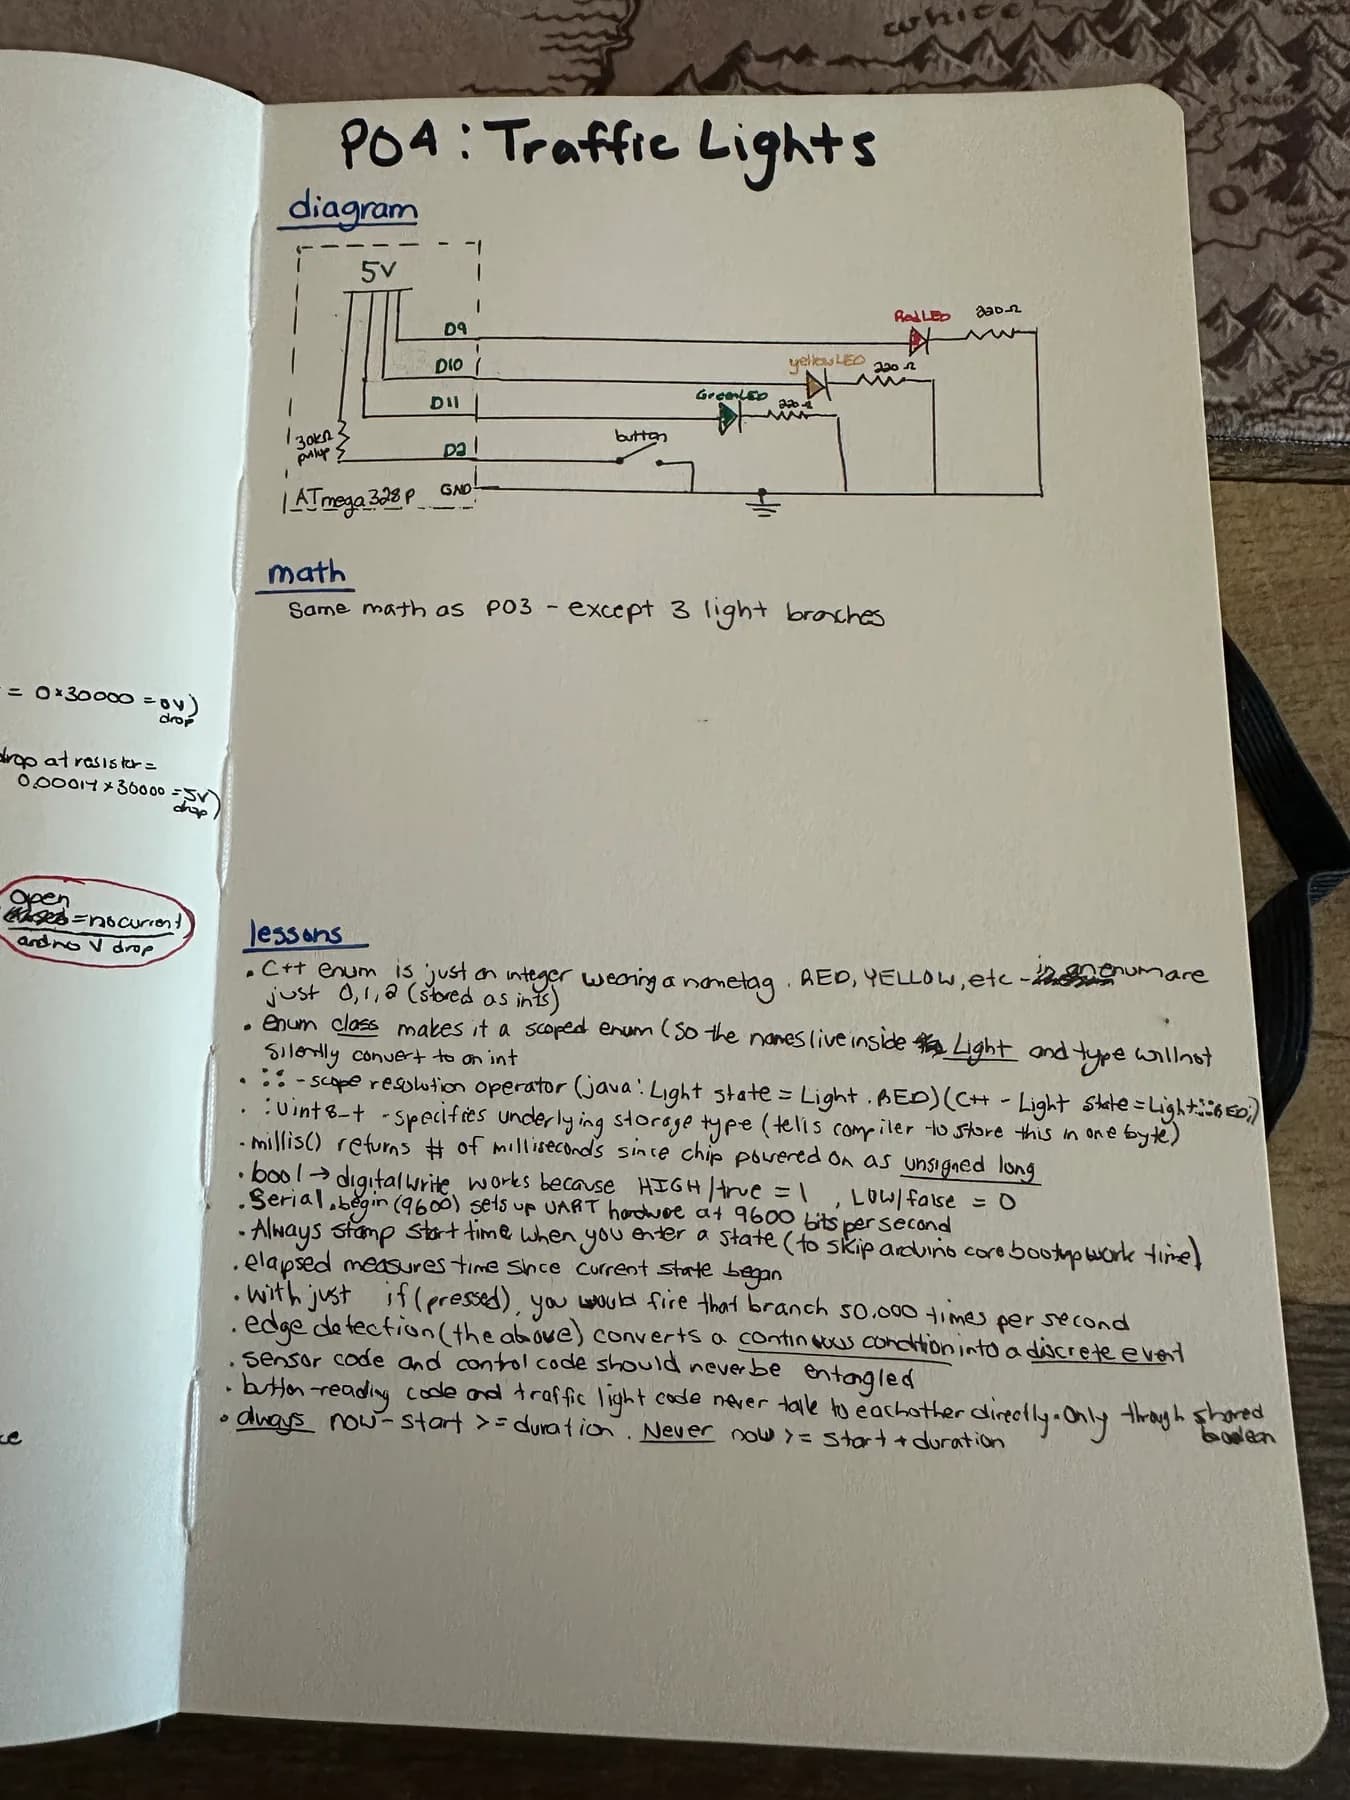 white
P04: Traffic Lights
diagram
5V
D9
Red LED
220Ω
D10
yellow LED
220Ω
D11
Green LED
220Ω
30kΩ
pullup
D2
button
ATmega328P
GND
math
Same math as P03 - except 3 light branches
= 0×30000 = 0V)
drop
drop at resistor =
0.00017×30000 = 5V)
drop
open
= no current
and no V drop
lessons
• C++ enum is just an integer wearing a nametag. RED, YELLOW, etc - in an enum are
just 0,1,2 (stored as ints)
• enum class makes it a scoped enum (so the names live inside Light and type will not
silently convert to an int
• :: - scope resolution operator (java: Light state = Light.RED) (C++ - Light state = Light::RED;)
• :uint8_t - specifies underlying storage type (tells compiler to store this in one byte)
• millis() returns # of milliseconds since chip powered on as unsigned long
• bool → digitalwrite works because HIGH/true = 1, LOW/false = 0
• Serial.begin(9600) sets up UART hardware at 9600 bits per second
• Always stamp start time when you enter a state (to skip arduino core bootup work time)
• elapsed measures time since current state began
• with just if(pressed), you would fire that branch 50,000 times per second
• edge detection (the above) converts a continuous condition into a discrete event
• sensor code and control code should never be entangled
• button-reading code and traffic light code never talk to eachother directly. Only through shared
boolean
• always now - start >= duration. Never now >= start + duration